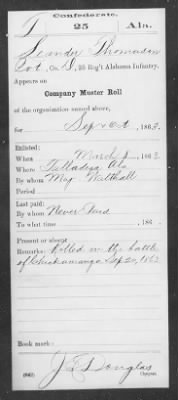 Confederate.
T 25 Ala.
Leander Thomason
Co. D, 25 Reg't Alabama Infantry.
Appears on
Company Muster Roll
of the organization named above,
for Sep & Oct, 1863.
Enlisted:
When March 186
Where Talladega Ala
By whom Maj. Walthall
Period
Last paid:
By whom Never Paid
To what time 186 .
Present or absent
Remarks: Killed in the battle
of Chickamauga Sep 20, 1863
Book mark:
J Douglas
(642) Copyist.